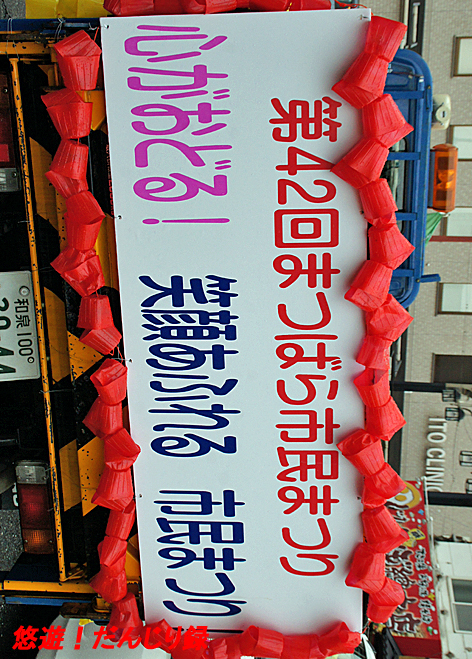 第42回まつばら市民まつり
心がおどる！ 笑顔あふれる 市民まつり！
和泉 100
ITO CLINIC
悠遊！だんじり録